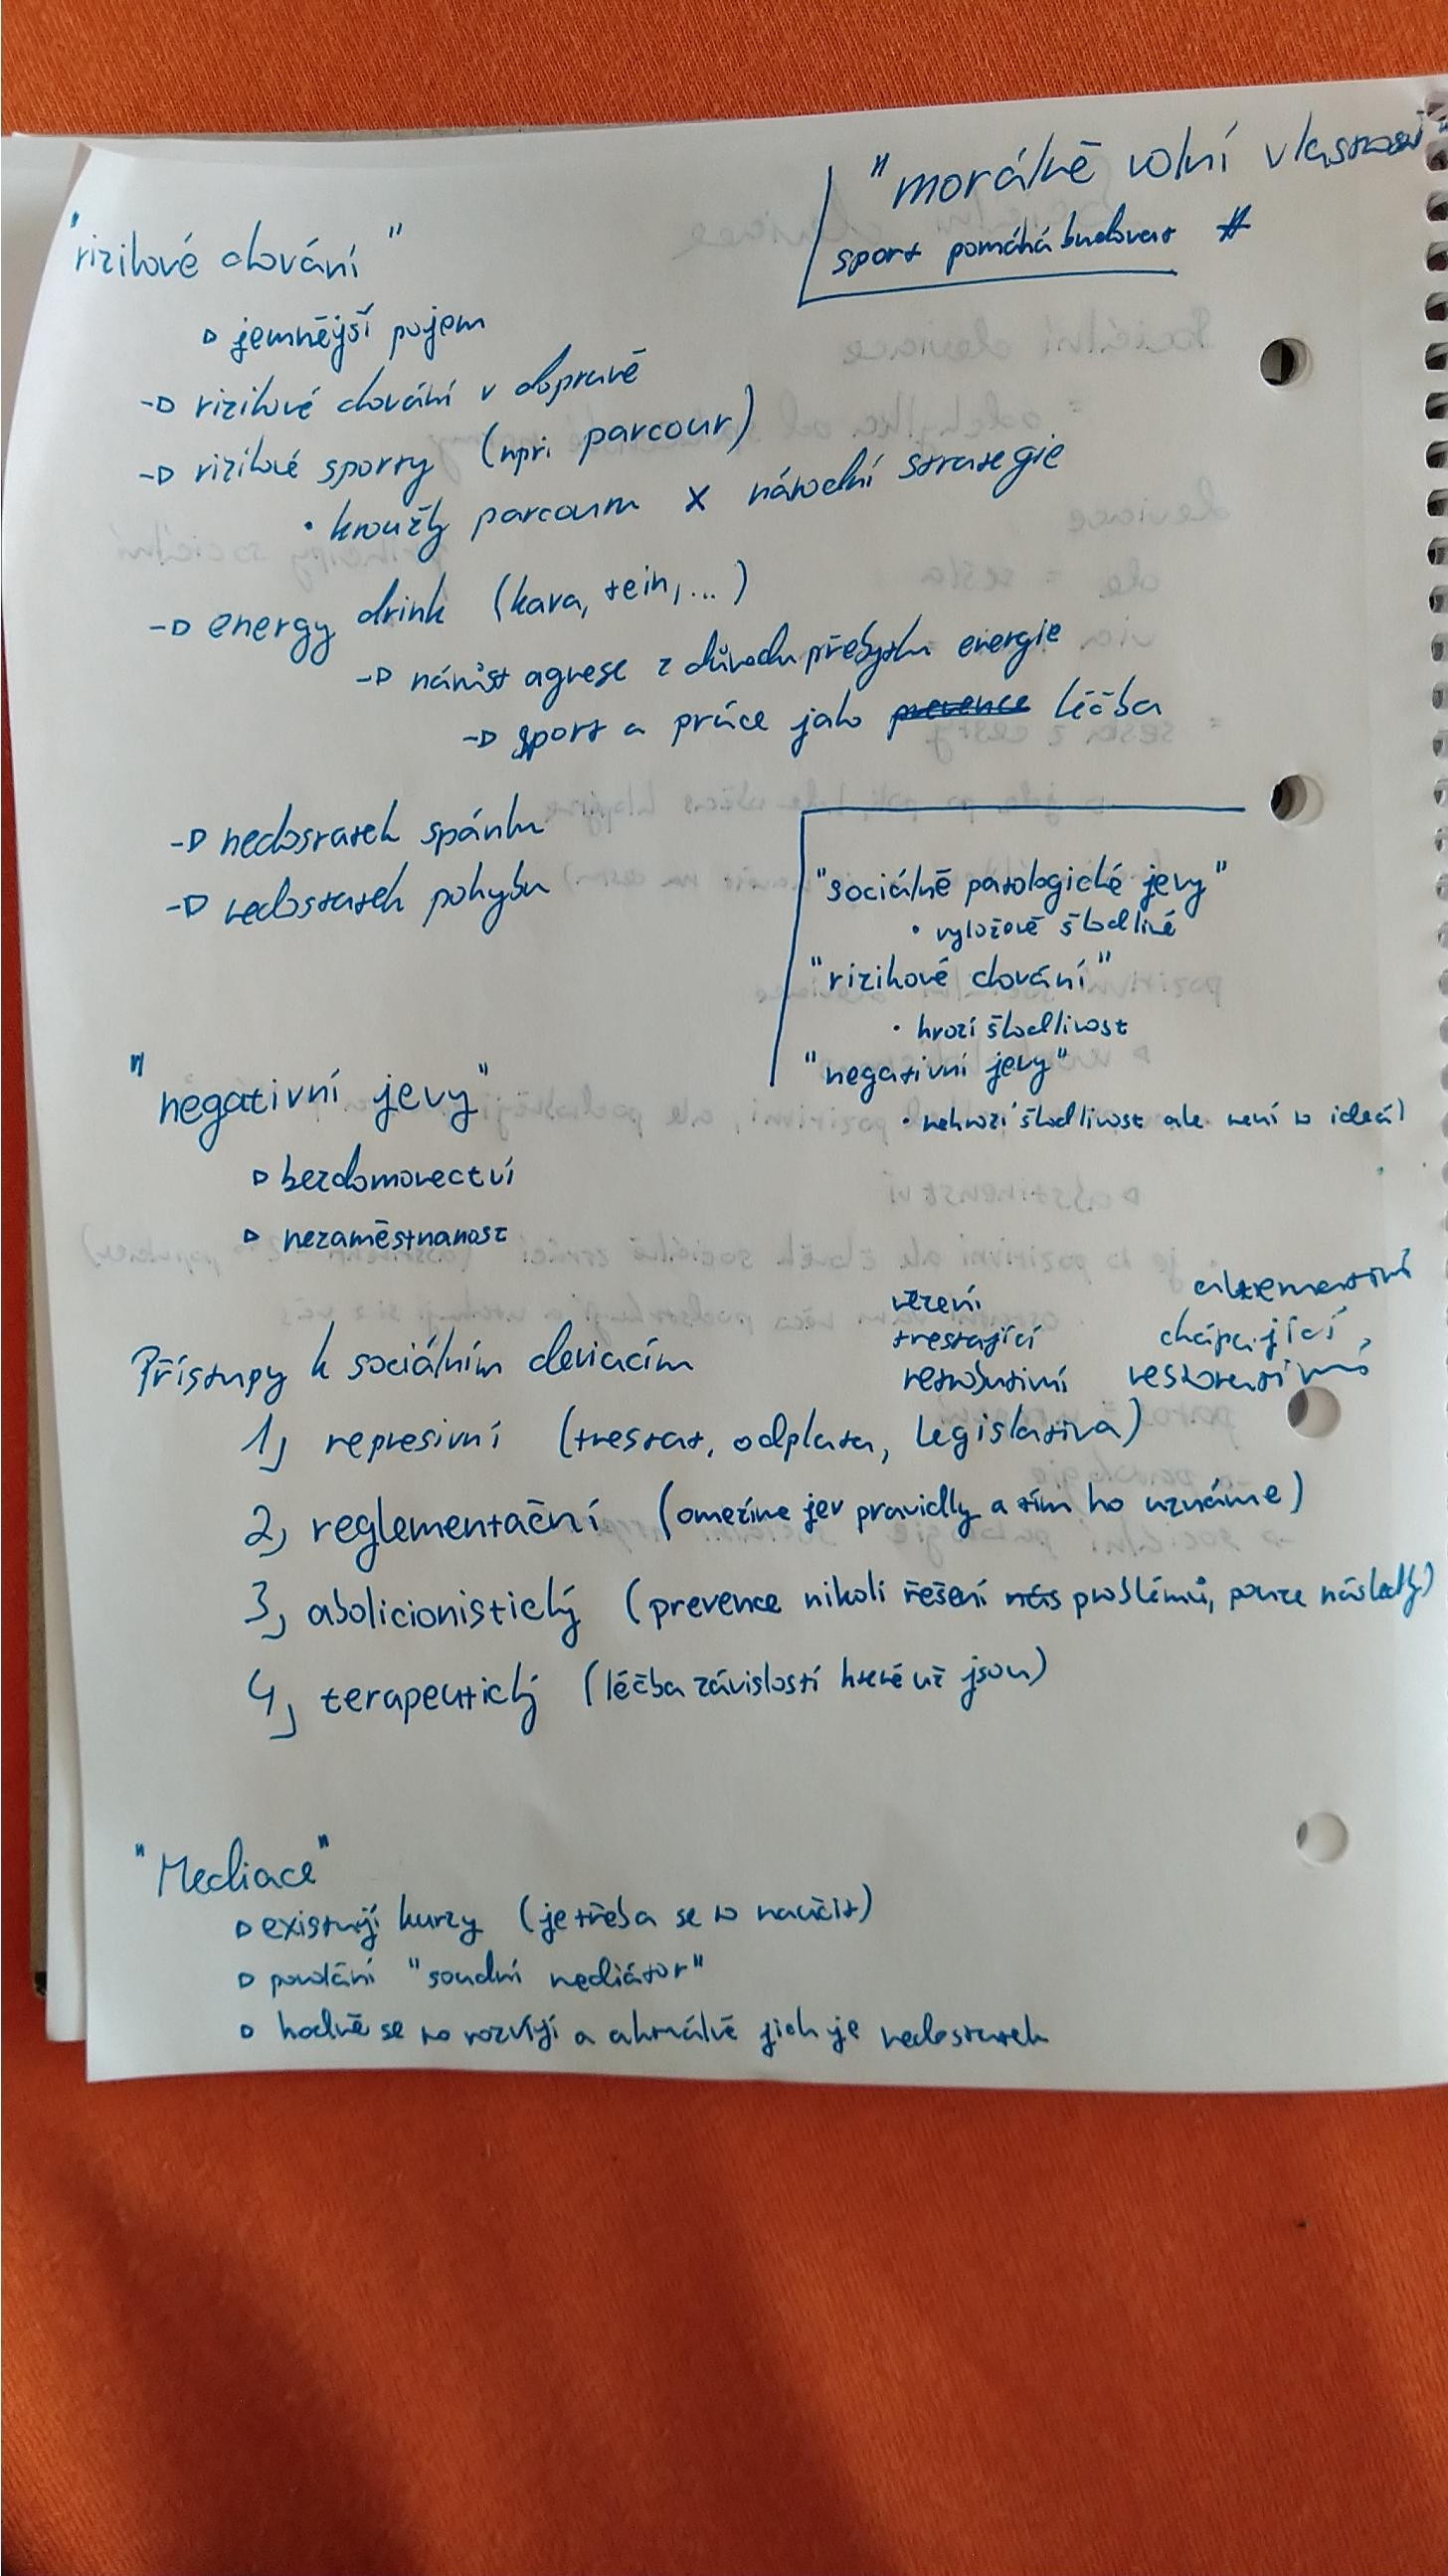 "morálně volní vlastnosti"
sport pomáhá budovat #
"rizikové chování"
jemnější pojem
rizikové chování v dopravě
rizikové sporty (npři parcour)
• kroužky parcouru x národní strategie
energy drink (kava, tein, ...)
nárůst agrese z důvodu přebytku energie
sport a práce jako prevence léčba
nedostatek spánku
nedostatek pohybu
"sociálně patologické jevy"
• vyloženě škodlivé
"rizikové chování"
• hrozí škodlivost
"negativní jevy"
• nehrozí škodlivost ale není to ideál
"negativní jevy"
bezdomovectví
nezaměstnanost
vězení
trestající chápající,
retributivní restorativní
Přístupy k sociálním deviacím
1, represivní (trestat, odplata, legislativa)
2, reglementační (omezíme jev pravidly a tím ho uznáme)
3, abolicionistický (prevence nikoli řešení problémů, pouze následky)
4, terapeutický (léčba závislostí které už jsou)
"Mediace"
existují kurzy (je třeba se to naučit)
povolání "soudní mediátor"
hodně se to rozvíjí a aktuálně jich je nedostatek